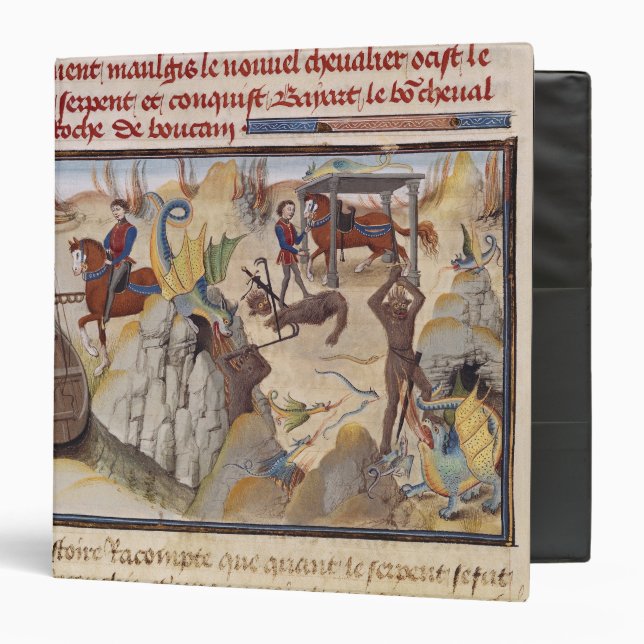 ment maulgis le nouuel cheualier ocist le
serpent et conquist Bayart le bō cheual
Roche de boucan
stoire Racompte que quant le serpent se fut